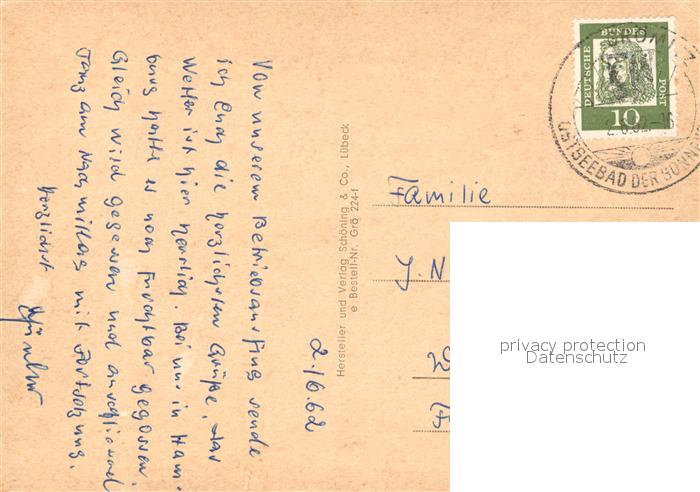 2./6.62
Von unserem Betriebsausflug sende
ich Euch die herzlichsten Grüße. Das
Wetter ist hier herrlich. Bei uns in Ham-
burg hatte es noch furchtbar gegossen.
Gleich wird gegessen und anschließend
Tanz am Nachmittag mit Fortsetzung.
Herzlichst
Günter
Hersteller und Verlag Schöning & Co., Lübeck
e Bestell-Nr. Grö 224-f
DEUTSCHE BUNDES POST
10
GRÖMITZ
2.6.62-16
OSTSEEBAD DER SONNE
Familie
J. N
privacy protection
Datenschutz